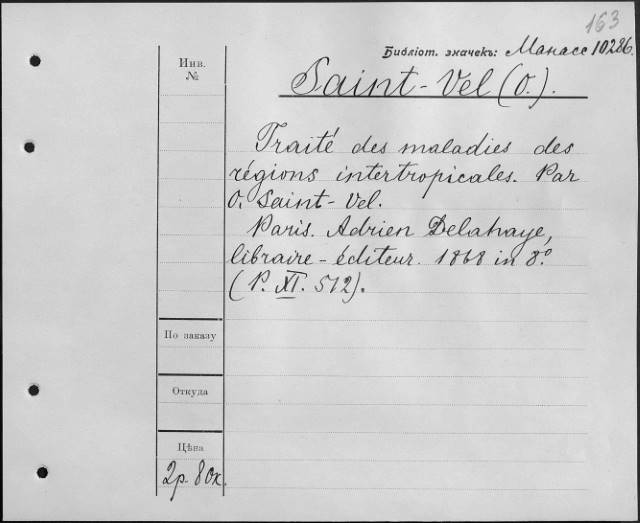 163
Библіот. значекъ: Манасс 10286.
Инв.
№
Saint-Vel (O.).
Traité des maladies des
régions intertropicales. Par
O. Saint-Vel.
Paris. Adrien Delahaye,
libraire-éditeur. 1868 in 8.º
(P. XI. 512).
По заказу
Откуда
Цѣна
2р. 80к.